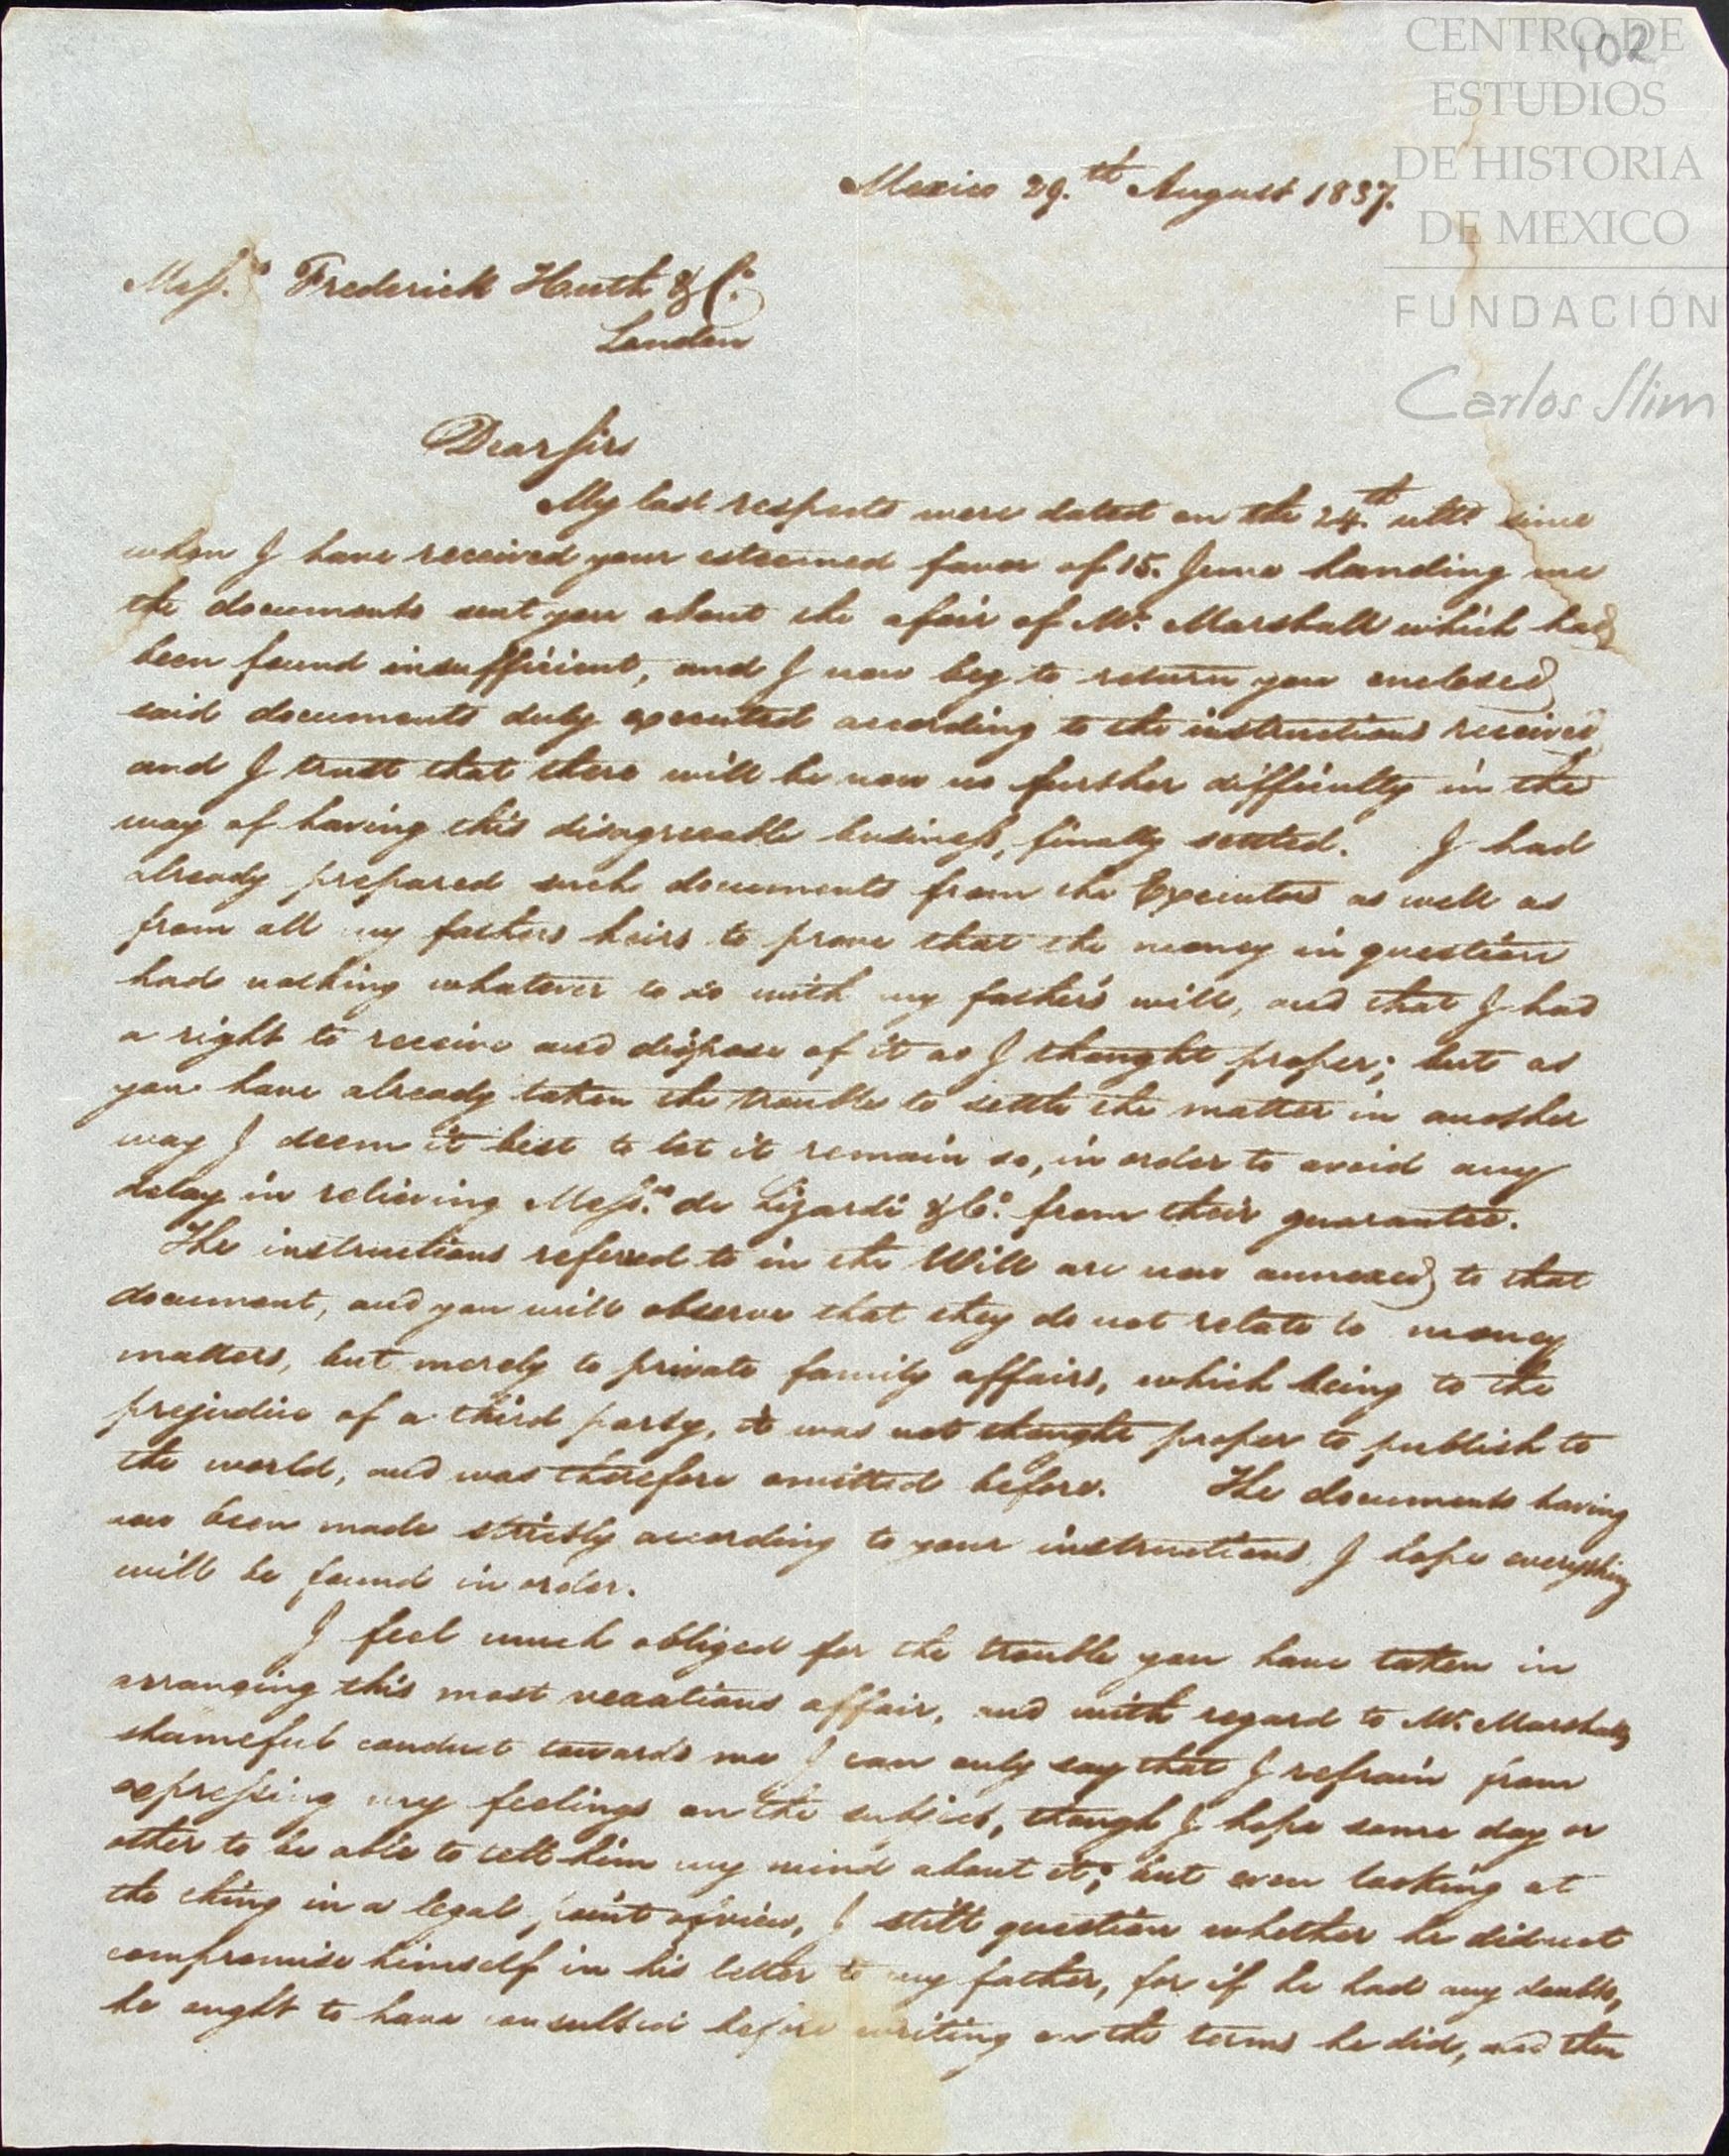 CENTRO DE
ESTUDIOS
DE HISTORIA
DE MEXICO
FUNDACIÓN
Carlos Slim
102
Mexico 29.th August 1837.
Mess.rs Frederick Huth & Co.
London
Dear Sirs
My last respects were dated on the 24.th ulto. since
when I have received your esteemed favor of 15. June handing me
the documents sent you about the afair of Mr. Marshall which had
been found insufficient, and I now beg to return you enclosed
said documents duly executed according to the instructions received
and I trust that there will be now no further difficulty in the
way of having this disagreeable business, finally settled. I had
already prepared such documents from the Executors as well as
from all my fathers heirs to prove that the money in question
had nothing whatever to do with my father's will, and that I had
a right to receive and dispose of it as I thought proper; but as
you have already taken the trouble to settle the matter in another
way I deem it best to let it remain so, in order to avoid any
delay in relieving Mess.rs de Lizardi & Co. from their guarantee.
The instructions refered to in the Will are now annexed to that
document, and you will observe that they do not relate to money
matters, but merely to private family affairs, which being to the
prejudice of a third party, it was not thought proper to publish to
the world, and was therefore omitted before. The documents having
now been made strictly according to your instructions I hope everything
will be found in order.
I feel much obliged for the trouble you have taken in
arranging this most vexatious affair, and with regard to Mr. Marshalls
shameful conduct towards me I can only say that I refrain from
expressing my feelings on the subject, though I hope some day or
other to be able to tell him my mind about it; but even looking at
the thing in a legal point of view, I still question whether he did not
compromise himself in his letter to my father, for if he had any doubts,
he ought to have consulted before writing on the terms he did, and then